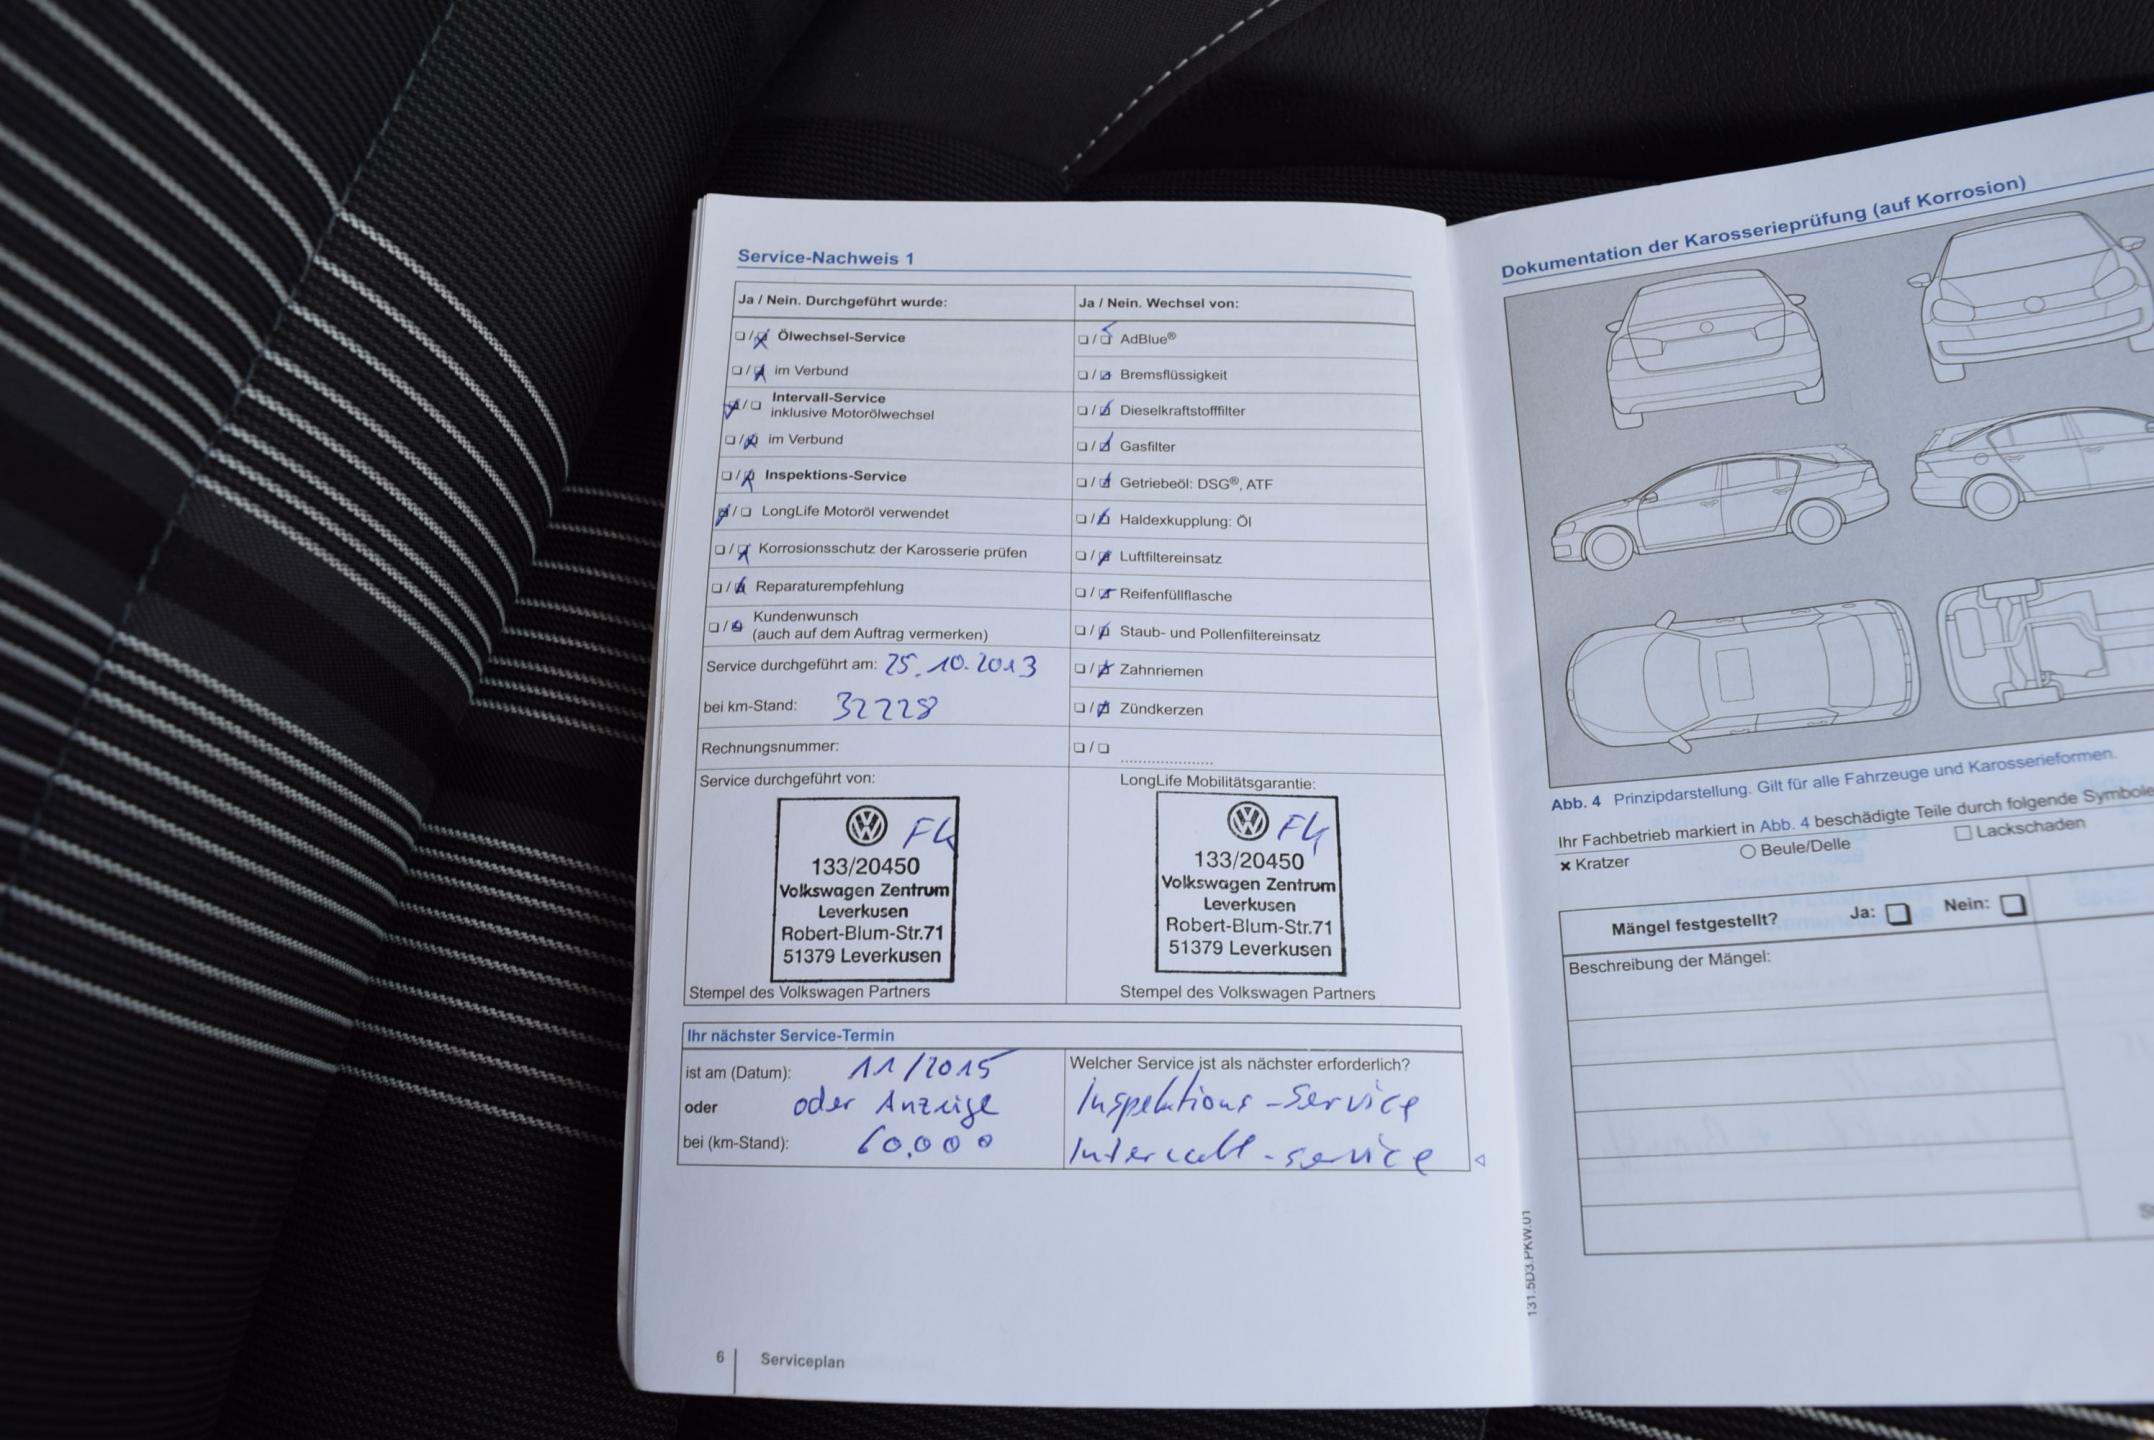 Service-Nachweis 1
Ja / Nein. Durchgeführt wurde:
❑ / ❑ Ölwechsel-Service
❑ / ❑ im Verbund
❑ / ❑ Intervall-Service
inklusive Motorölwechsel
❑ / ❑ im Verbund
❑ / ❑ Inspektions-Service
❑ / ❑ LongLife Motoröl verwendet
❑ / ❑ Korrosionsschutz der Karosserie prüfen
❑ / ❑ Reparaturempfehlung
❑ / ❑ Kundenwunsch
(auch auf dem Auftrag vermerken)
Service durchgeführt am: 25.10.2013
bei km-Stand: 32228
Rechnungsnummer:
Service durchgeführt von:
FK
133/20450
Volkswagen Zentrum
Leverkusen
Robert-Blum-Str.71
51379 Leverkusen
Stempel des Volkswagen Partners
Ja / Nein. Wechsel von:
❑ / ❑ AdBlue®
❑ / ❑ Bremsflüssigkeit
❑ / ❑ Dieselkraftstofffilter
❑ / ❑ Gasfilter
❑ / ❑ Getriebeöl: DSG®, ATF
❑ / ❑ Haldexkupplung: Öl
❑ / ❑ Luftfiltereinsatz
❑ / ❑ Reifenfüllflasche
❑ / ❑ Staub- und Pollenfiltereinsatz
❑ / ❑ Zahnriemen
❑ / ❑ Zündkerzen
❑ / ❑ ......................
LongLife Mobilitätsgarantie:
133/20450
Volkswagen Zentrum
Leverkusen
Robert-Blum-Str.71
51379 Leverkusen
Stempel des Volkswagen Partners
Ihr nächster Service-Termin
ist am (Datum): 11/2015
oder oder Anzeige
bei (km-Stand): 60.000
Welcher Service ist als nächster erforderlich?
Inspektions-Service
Intervall-service
6 Serviceplan
Dokumentation der Karosserieprüfung (auf Korrosion)
Abb. 4 Prinzipdarstellung. Gilt für alle Fahrzeuge und Karosserieformen.
Ihr Fachbetrieb markiert in Abb. 4 beschädigte Teile durch folgende Symbole
× Kratzer ○ Beule/Delle □ Lackschaden
Mängel festgestellt? Ja: ❑ Nein: ❑
Beschreibung der Mängel:
131.5D3.PKW.01